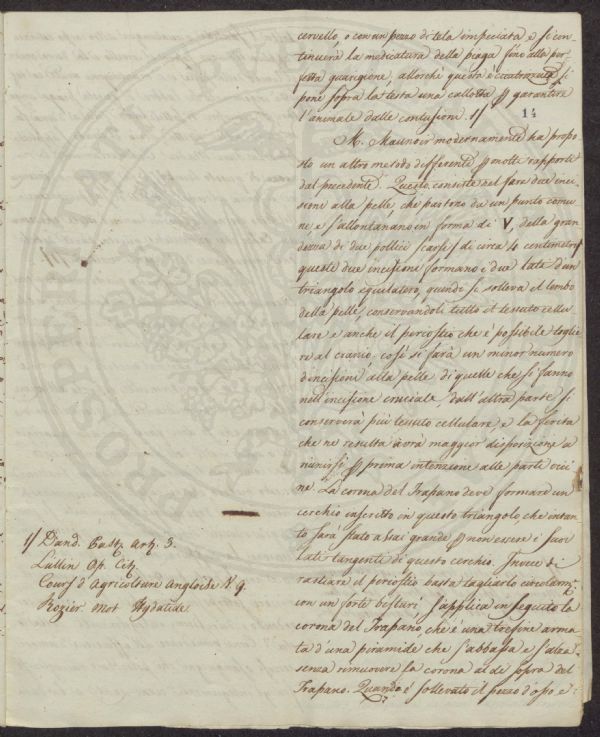 cervello, o con un pezzo di tela impeciata e si con-
tinuerà la medicatura della piaga fino alla per-
fetta guarigione, allorchè questa è cicatrizzata si
pone sopra la testa una callotta p garantire
l'animale dalle contusioni. 1/
14
M. Maunoir modernamente ha propo
sto un altro metodo differente p molti rapporti
dal precedente. Questo consiste nel fare due inci
sione alla pelle che partono da un punto comu
ne e s'allontanano in forma di V, della gran
dezza di due pollici scarsi / di circa 4 centimetri /
queste due incisione formano i due lati d'un
triangolo equilatero, quindi si solleva il lembo
della pelle, conservandoli tutto il tessuto cellu
lare e anche il periostio che è possibile toglie
re al cranio; così si farà un minor numero
d'incisioni alla pelle di quelle che si fanno
nell'incisione cruciale, dall'altra parte si
conserverà più tessuto cellulare e la ferita
che ne resulta avrà maggior disposizione a
riunirsi p prima intenzione alle parti vici
ne. La corona del Trapano deve formare un
cerchio inscritto in questo triangolo, che intan
to sarà stato assai grande p non essere i suoi
lati tangenti di questo cerchio. Invece di
rastiare il periostio basta tagliarlo circolarmte
con un forte bisturì, s'applica in seguito la
corona del Trapano, che è una trefine arma
ta d'una piramide che s'abbassa e s'alza
senza rimuovere la corona al di sopra del
Trapano. Quando è sollevato il pezzo d'osso e
1/ Dand. Past. Art. 3.
Lullin Op. Cit.
Cours d'Agricolture Angloise V. 9.
Rozier mot Hydatide
PROSPERITAT